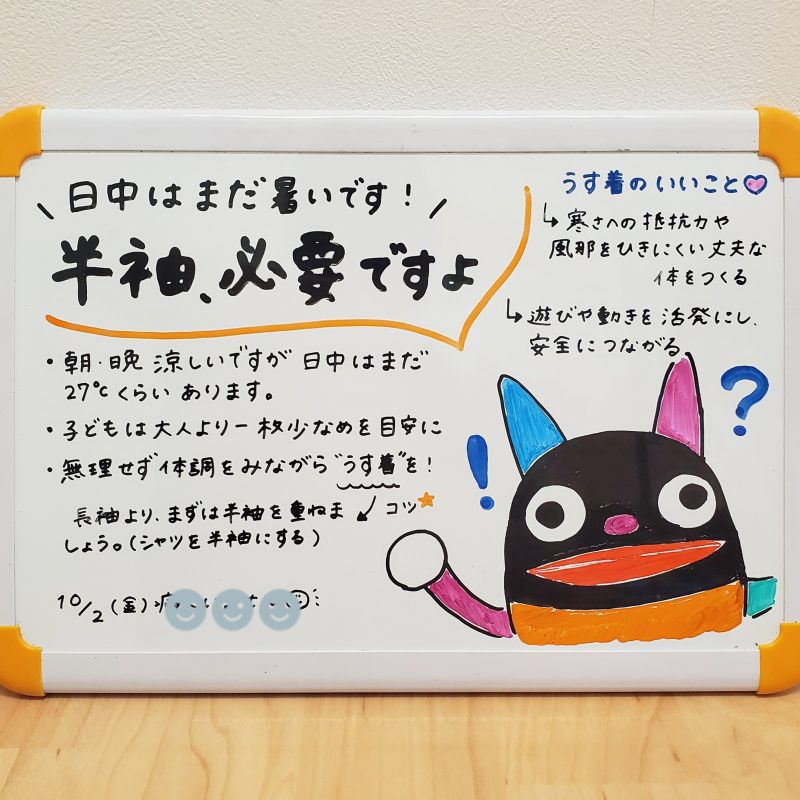 \ 日中はまだ暑いです! /
半袖、必要ですよ
・朝・晩 涼しいですが 日中はまだ
27℃くらい あります。
・子どもは大人より一枚少なめを目安に
・無理せず体調をみながら"うす着"を!
コツ
長袖より、まずは半袖を重ねま
しょう。(シャツを半袖にする)
10/2(金)
うす着のいいこと
↳ 寒さへの抵抗力や
風邪をひきにくい丈夫な
体をつくる
↳ 遊びや動きを活発にし、
安全につながる
!
?